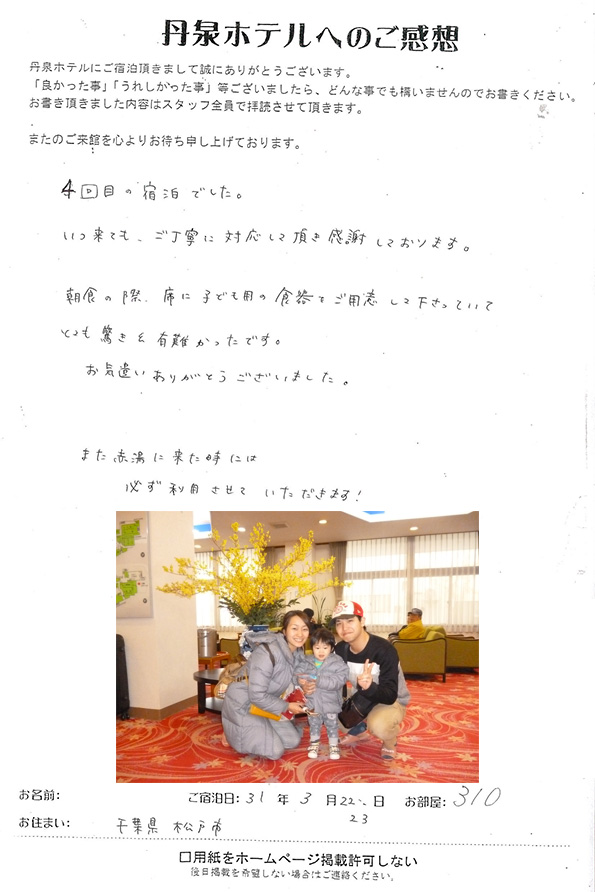 丹泉ホテルへのご感想
丹泉ホテルにご宿泊頂きまして誠にありがとうございます。
「良かった事」「うれしかった事」等ございましたら、どんな事でも構いませんのでお書きください。
お書き頂きました内容はスタッフ全員で拝読させて頂きます。
またのご来館を心よりお待ち申し上げております。
4回目の宿泊でした。
いつ来ても、ご丁寧に対応して頂き感謝しております。
朝食の際、席に子ども用の食器をご用意して下さっていて
とても驚きと有難かったです。
お気遣いありがとうございました。
また赤湯に来た時には
必ず利用させていただきます!
お名前: ご宿泊日: 31 年 3 月 22、日 お部屋: 310
23
お住まい: 千葉県 松戸市
□用紙をホームページ掲載許可しない
後日掲載を希望しない場合はご連絡ください。